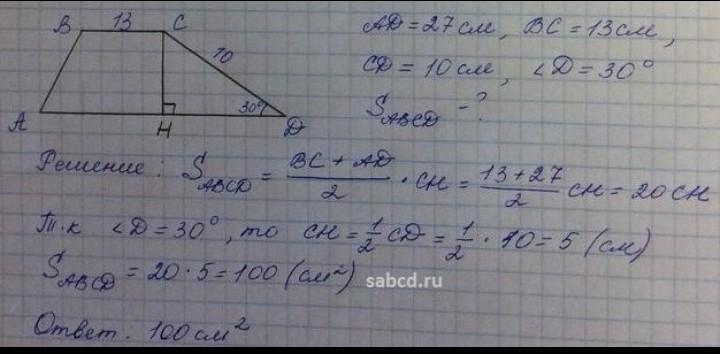 B 13 C
AD = 27 см, BC = 13 см,
10
CD = 10 см, ∠D = 30°
30°
A H D
S_ABCD - ?
Решение: S_ABCD = (BC + AD)/2 · CH = (13 + 27)/2 CH = 20 CH
Т.к ∠D = 30°, то CH = 1/2 CD = 1/2 · 10 = 5 (см)
S_ABCD = 20 · 5 = 100 (см²)
sabcd.ru
Ответ: 100 см²